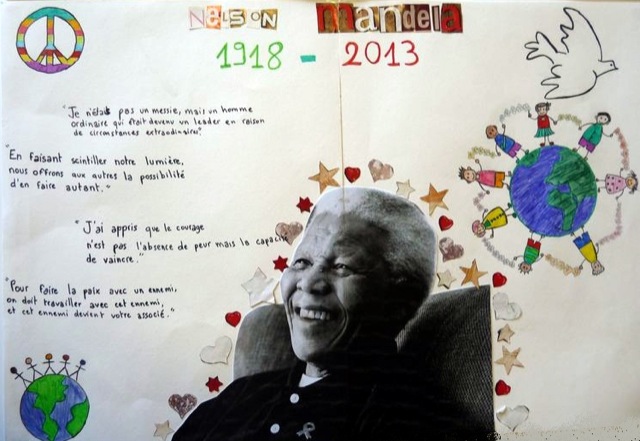 NELSON mandela
1918 - 2013
"Je n'étais pas un messie, mais un homme
ordinaire qui était devenu un leader en raison
de circonstances extraordinaires"
"En faisant scintiller notre lumière,
nous offrons aux autres la possibilité
d'en faire autant."
"J'ai appris que le courage
n'est pas l'absence de peur mais la capacité
de vaincre."
"Pour faire la paix avec un ennemi,
on doit travailler avec cet ennemi,
et cet ennemi devient votre associé."